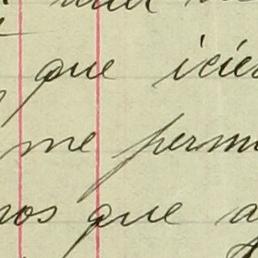 que icies
me permi
nos que a